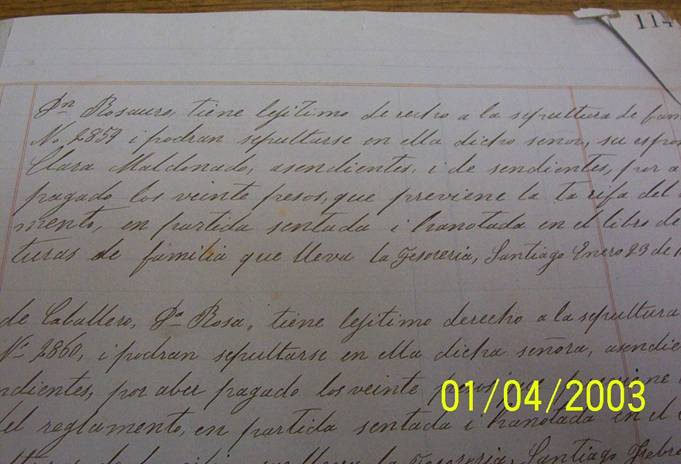 114
Dn Rosauro, tiene lejitimo derecho a la sepultura de fam
No. 2859 i podran sepultarse en ella dicho señor, su espo
Clara Maldonado, asendientes, i de sendientes, por a
pagado los veinte pesos, que previene la ta rifa del
mento, en partida sentada i hanotada en el libro de
turas de familia que lleva la Tesoreria, Santiago Enero 23 de 1
de Caballero, Da Rosa, tiene lejitimo derecho a la sepultura
No. 2860, i podran sepultarse en ella dicha señora, asendie
ndientes, por aber pagado los veinte
01/04/2003
del reglamento, en partida sentada i hanotada en el
lleva la Tesoreria, Santiago Febre